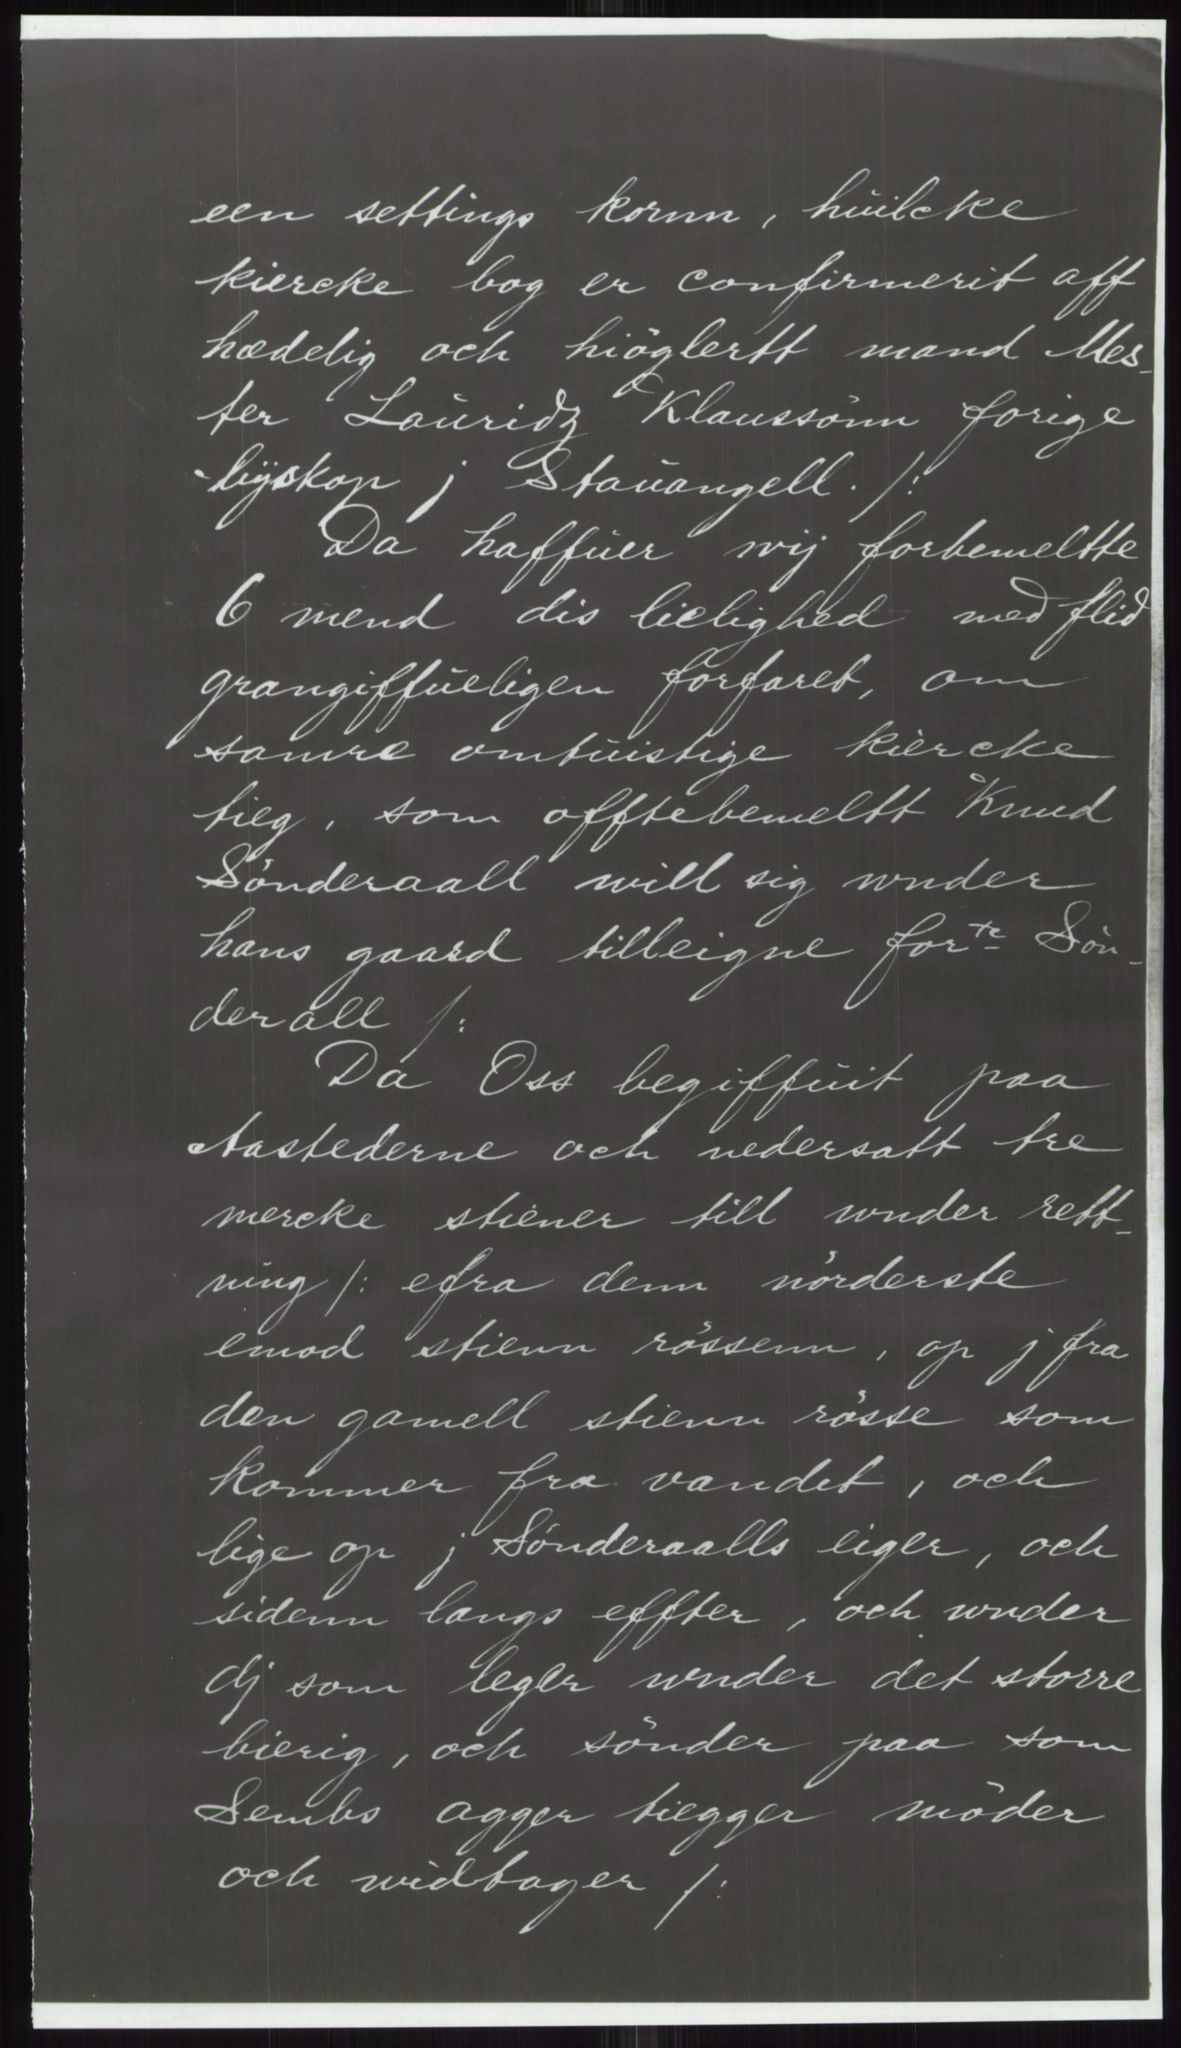 een settings kornn, huilcke
kiercke bog er confirmerit aff
hædelig och hiöglertt mand Mes-
ter Lauridz Klaussönn forige
bijskop j Stauangell. /:
Da haffuer wij forbemeltte
6 mend dis lielighed med flid
grangiffueligen forfaret, om
samre omtuistige kiercke
tieg, som offtebemeltt Knud
Sönderaall will sig wnder
hans gaard tilleigne for te Sön-
derall /:
Da Oss begiffuit paa
Aastederne och nedersatt tre
mercke stiener till wnder rett-
ning /: efra denn nörderste
emod stienn rössenn, op j fra
den gamell stienn rösse som
kommer fra vandet, och
lige op j Sönderaalls eiger, och
sidenn langs effter, och wnder
dj som leger wnder det storre
bierig, och sönder paa som
Sembs agger tiegger möder
och widtager /: